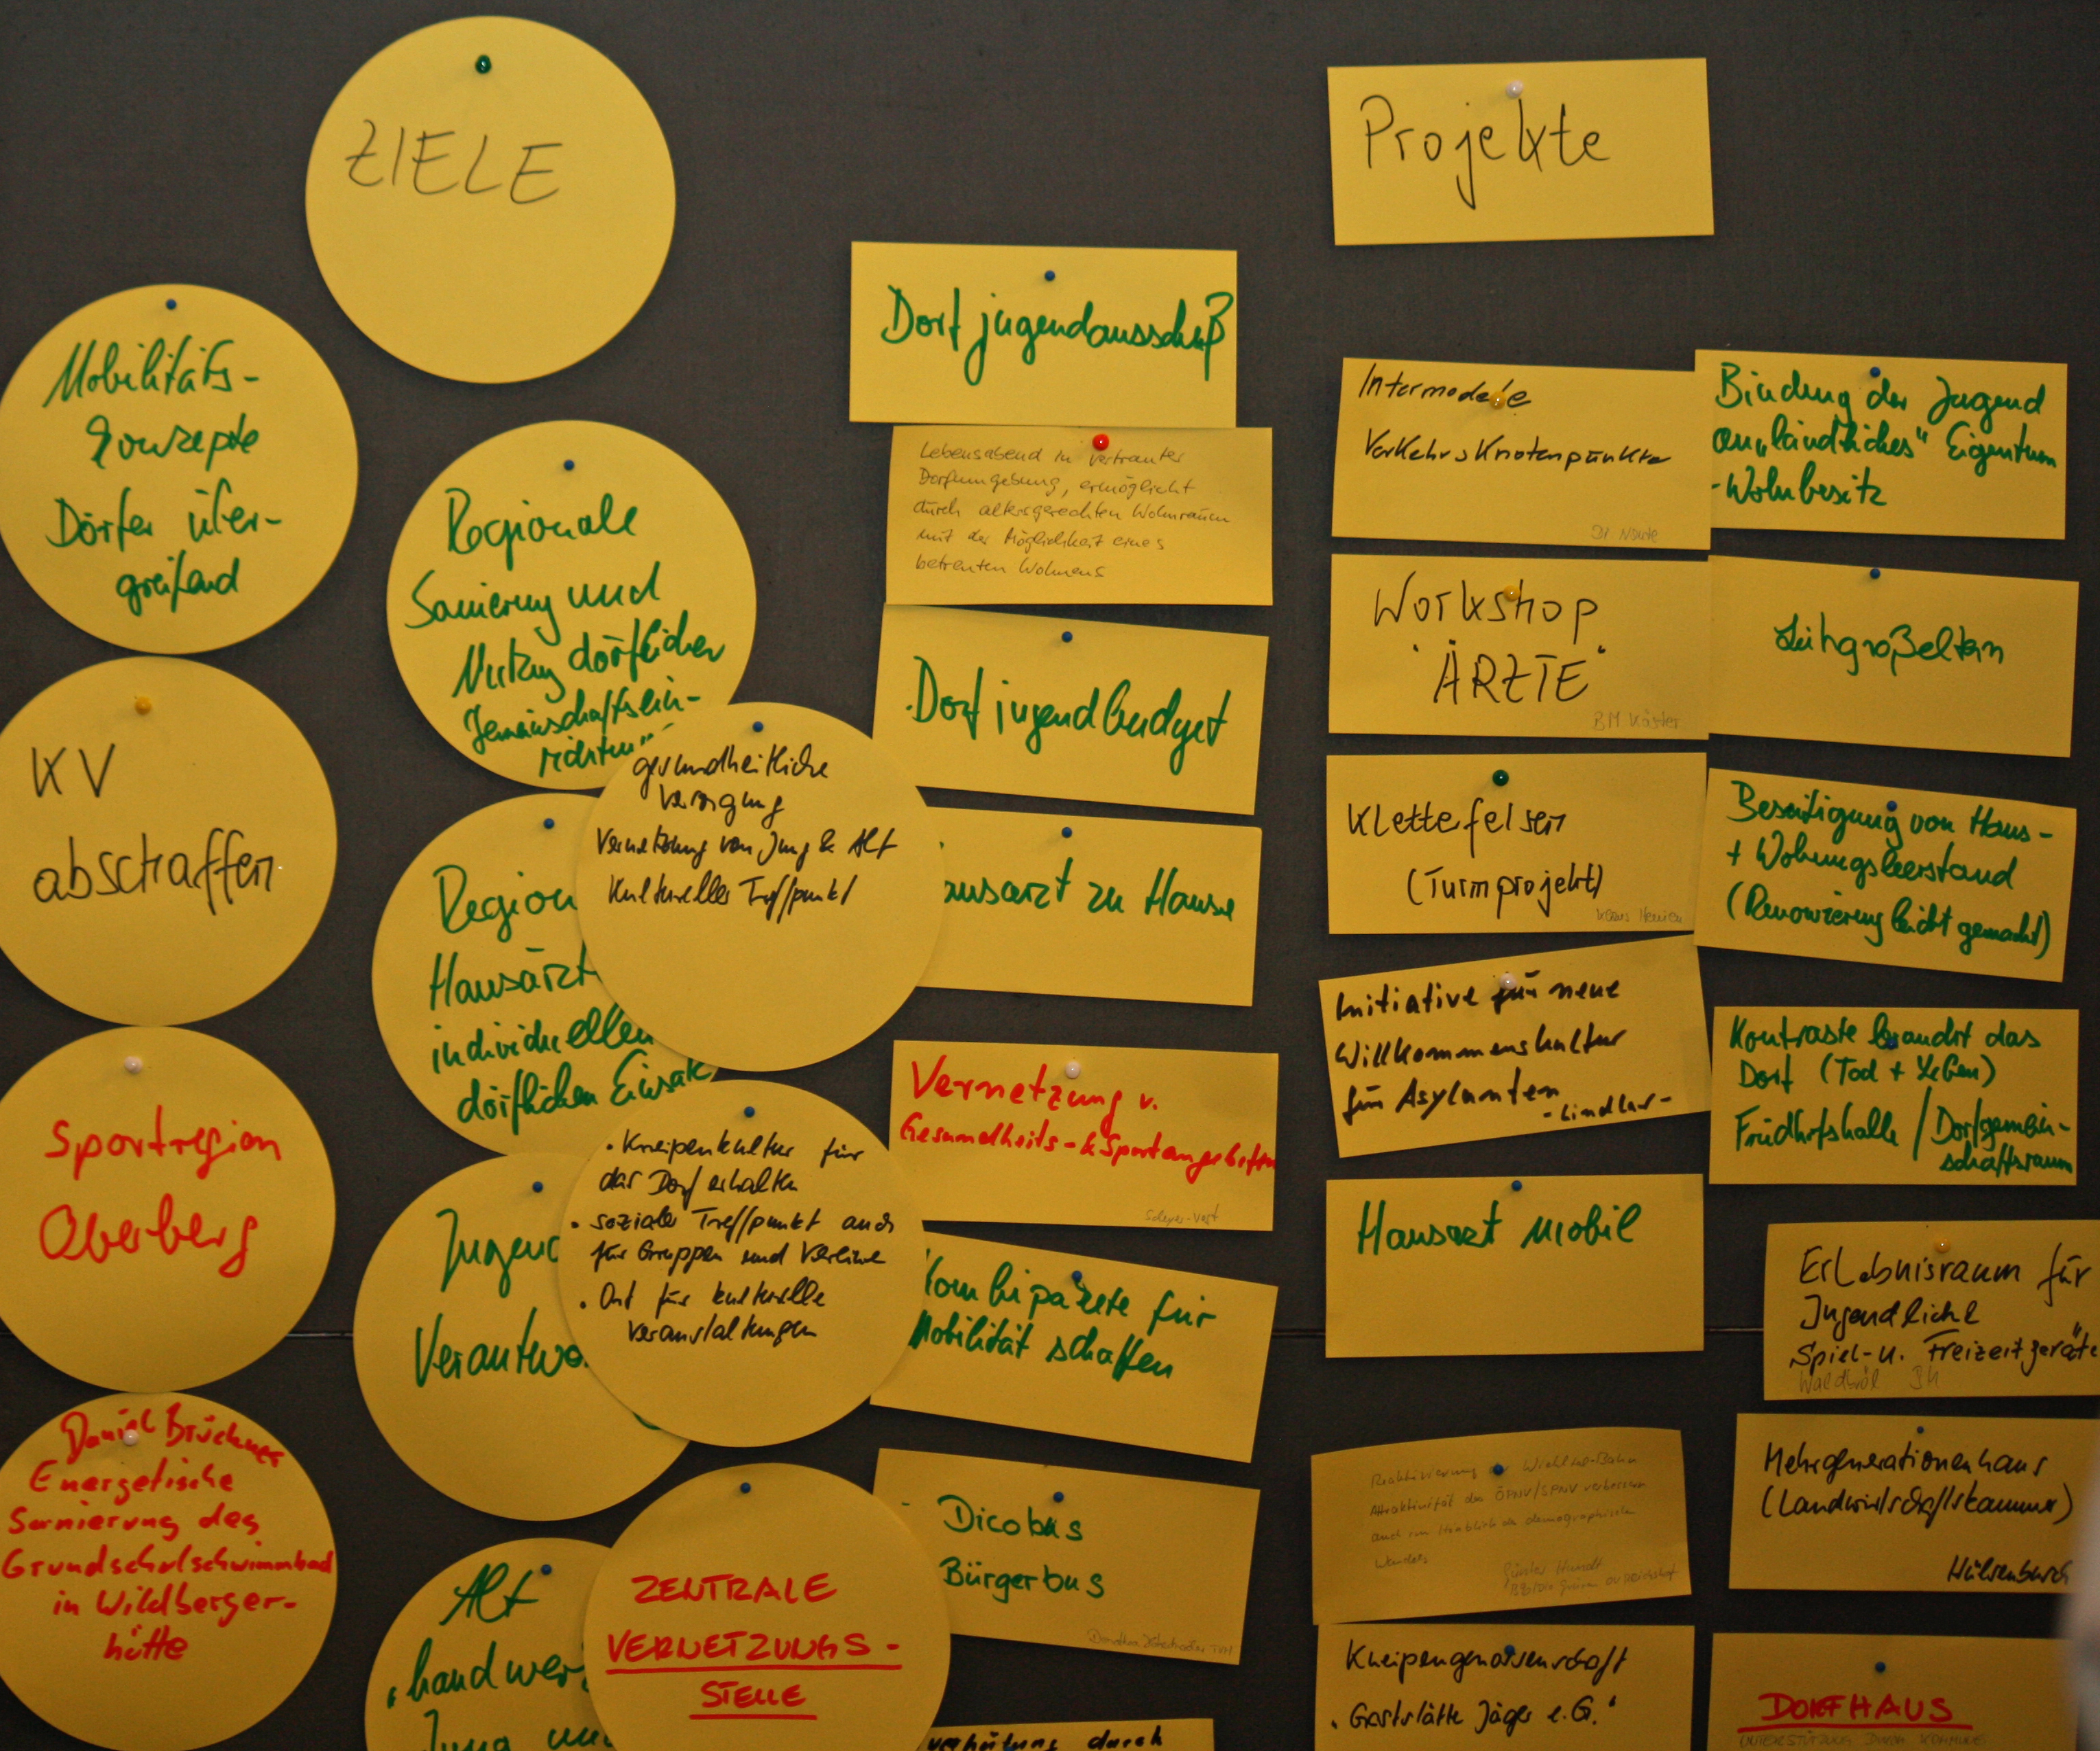 ZIELE
Mobilitäts-
Konzepte
Dörfer über-
greifend
KV
abschaffen
Sportregion
Oberberg
Daniel Brückner
Energetische
Sanierung des
Grundschulschwimmbad
in Wildberger-
hütte
Regionale
Sanierung und
Nutzung dörflicher
Gemeinschaftsein-
richtun
Region
Hausärzt
individuellen
dörflichen Einsatz
Jugend
Verantwo
Alt
handwer
Jung un
gesundheitliche
Versorgung
Vernetzung von Jung & Alt
Kultureller Treffpunkt
• Kneipenkultur für
das Dorf erhalten
• sozialer Treffpunkt auch
für Gruppen und Vereine
• Ort für kulturelle
Veranstaltungen
ZENTRALE
VERNETZUNGS-
STELLE
Dorfjugendausschuß
Lebensabend in vertrauter
Dorfumgebung, ermöglicht
durch altersgerechten Wohnraum
mit der Möglichkeit eines
betreuten Wohnens
Dorfjugendbudget
ausarzt zu Hause
Vernetzung v.
Gesundheits- & Sportangeboten
Kombipakete für
Mobilität schaffen
Dicobus
Bürgerbus
Dorothea
verhütung durch
Projekte
Intermodale
Verkehrsknotenpunkte
Workshop
"ÄRZTE"
BM
Kletterfelsen
(Turmprojekt)
Initiative für neue
Willkommenskultur
für Asylanten
-Lindlar-
Hausarzt mobil
Reaktivierung der Wiehltal-Bahn
Attraktivität des ÖPNV/SPNV verbessern
auch im Hinblick des demographischen
Wandels
Kneipengenossenschaft
"Gaststätte Jäger e.G."
Bindung der Jugend
an "ländliches" Eigentum
-Wohnbesitz
Leihgroßeltern
Beseitigung von Haus-
+ Wohnungsleerstand
(Renovierung leicht gemacht)
Kontraste braucht das
Dorf (Tod + Leben)
Friedhofshalle / Dorfgemein-
schaftsraum
Erlebnisraum für
Jugendliche
Spiel- u. Freizeitgeräte
Waldbröl
Mehrgenerationenhaus
(Landwirtschaftskammer)
Hülsenbusch
DORFHAUS
UNTERSTÜTZUNG DURCH KOMMUNE